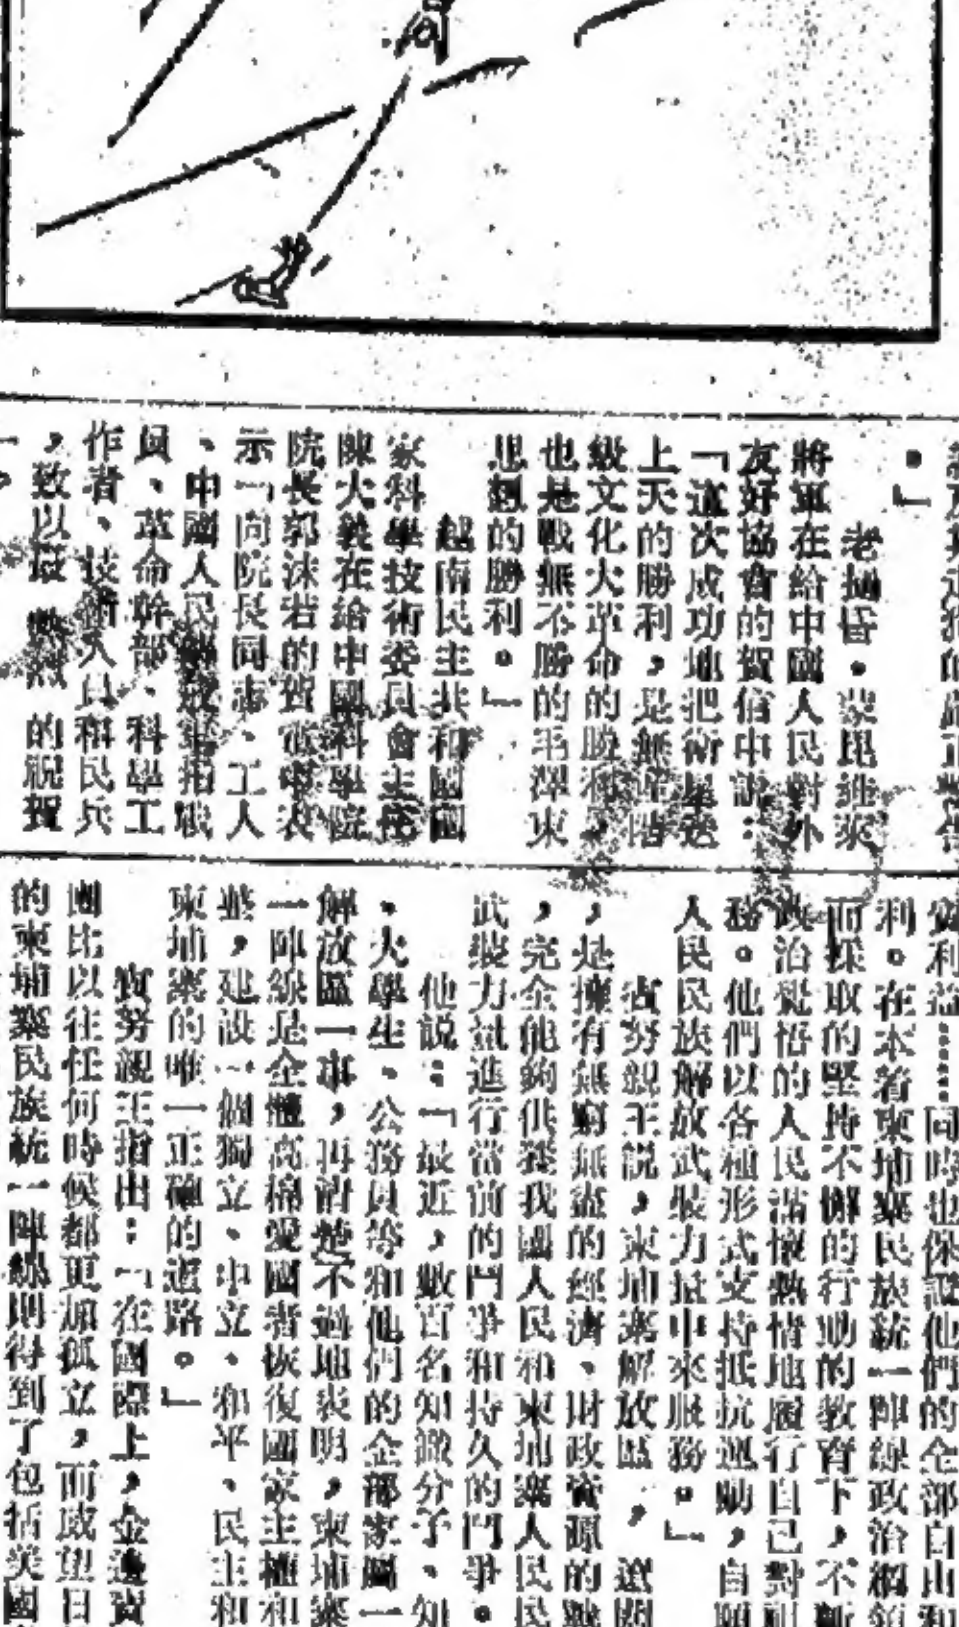 。」
老撾昔·蒙昆維來
將軍在給中國人民對外
友好協會的賀信中說：
「這次成功地把衛星送
上天的勝利，是無產階
級文化大革命的勝利，
也是戰無不勝的毛澤東
思想的勝利。」
越南民主共和國國
家科學技術委員會主任
陳大義在給中國科學院
院長郭沫若的賀電中表
示「向院長同志、工人
、中國人民解放軍指戰
員、革命幹部、科學工
作者、技術人員和民兵
，致以最熱烈的祝賀
利。在本着柬埔寨民族統一陣線政治綱領
而採取的堅持不懈的行動的教育下，不斷
政治覺悟的人民滿懷熱情地履行自己對祖
務。他們以各種形式支持抵抗運動，自願
人民民族解放武裝力量中來服務。」
賓努親王說，柬埔寨解放區，這個
，是擁有無窮無盡的經濟、財政資源的戰
，完全能夠供養我國人民和柬埔寨人民民
武裝力量進行當前的鬥爭和持久的鬥爭。
他說：「最近，數百名知識分子、知
、大學生、公務員等和他們的全部家屬一
解放區一事，再清楚不過地表明，柬埔寨
一陣線是全體高棉愛國者恢復國家主權和
整，建設一個獨立、中立、和平、民主和
柬埔寨的唯一正確的道路。」
賓努親王指出：「在國際上，金邊賣
團比以往任何時候都更加孤立，而
的柬埔寨民族統一陣線則得到了包括美國